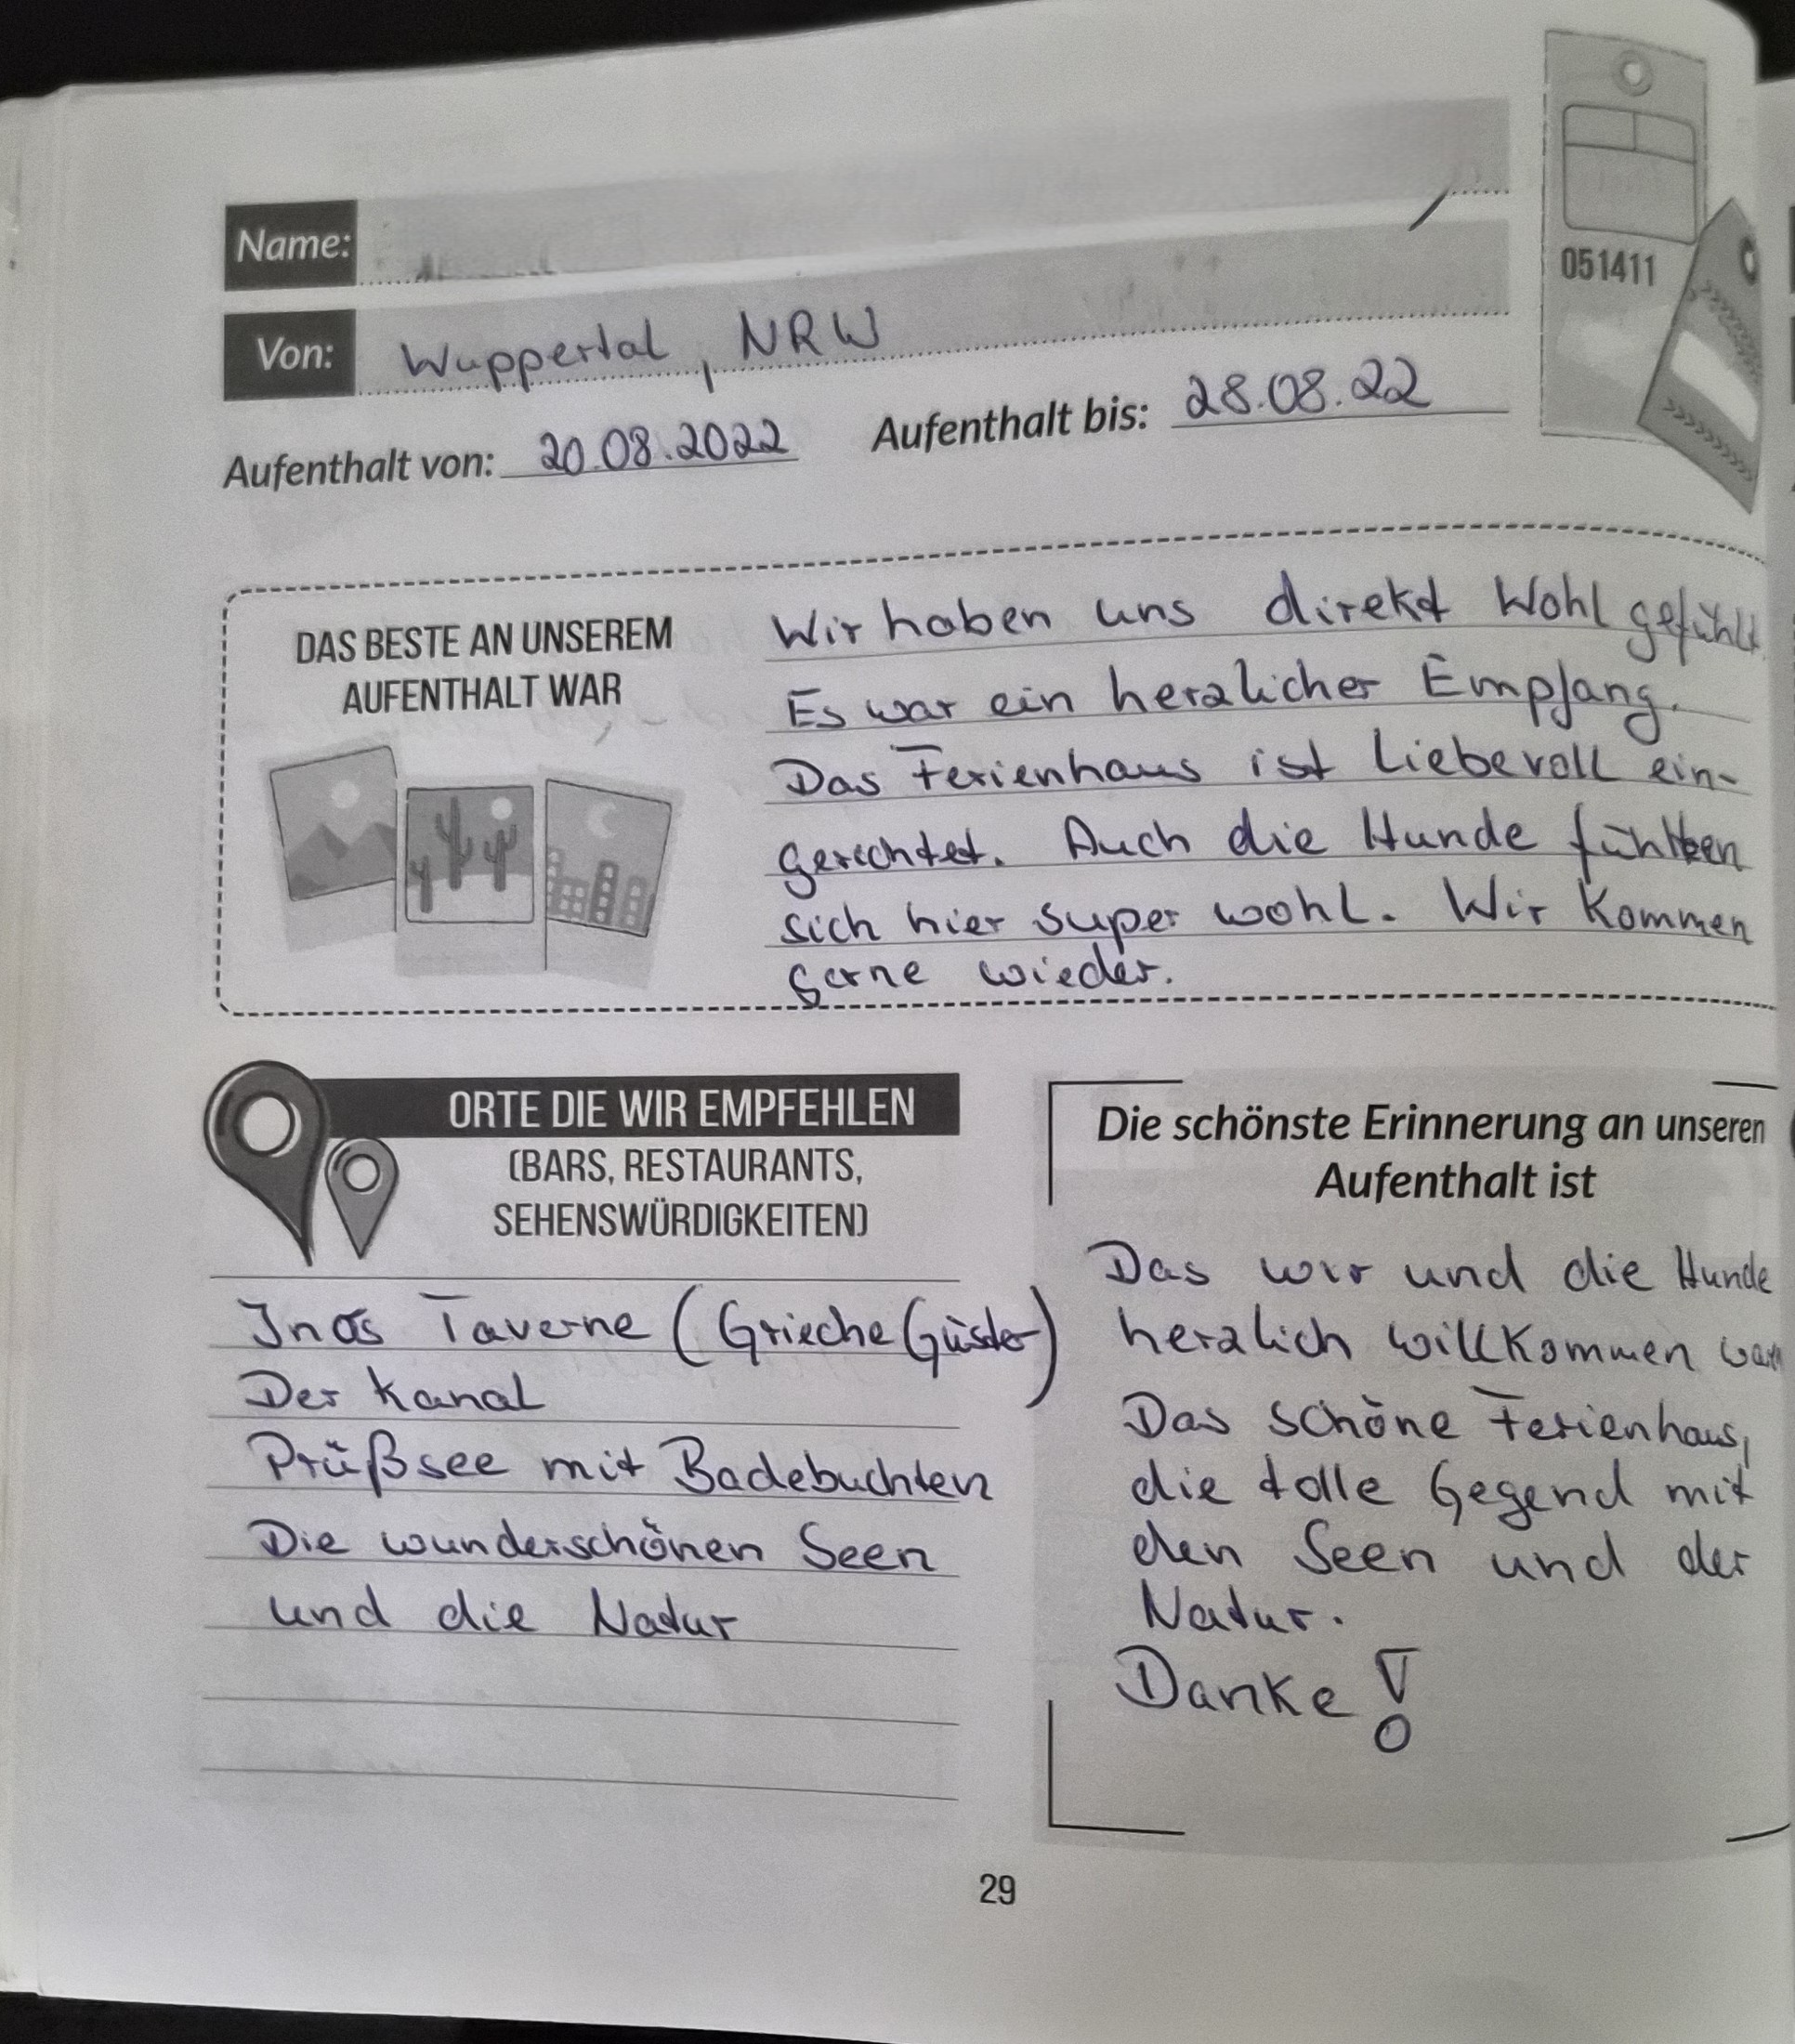 051411
Name:
Von: Wuppertal, NRW
Aufenthalt von: 20.08.2022 Aufenthalt bis: 28.08.22
DAS BESTE AN UNSEREM
AUFENTHALT WAR
Wir haben uns direkt Wohl gefühlt.
Es war ein herzlicher Empfang.
Das Ferienhaus ist Liebevoll ein-
gerichtet. Auch die Hunde fühlten
sich hier super wohl. Wir kommen
gerne wieder.
ORTE DIE WIR EMPFEHLEN
(BARS, RESTAURANTS,
SEHENSWÜRDIGKEITEN)
Taverne (Grieche Güster)
Der Kanal
Prüßsee mit Badebuchten
Die wunderschönen Seen
und die Natur
Die schönste Erinnerung an unseren
Aufenthalt ist
Das wir und die Hunde
herzlich willkommen
Das schöne Ferienhaus,
die tolle Gegend mit
den Seen und der
Natur.
Danke!
29